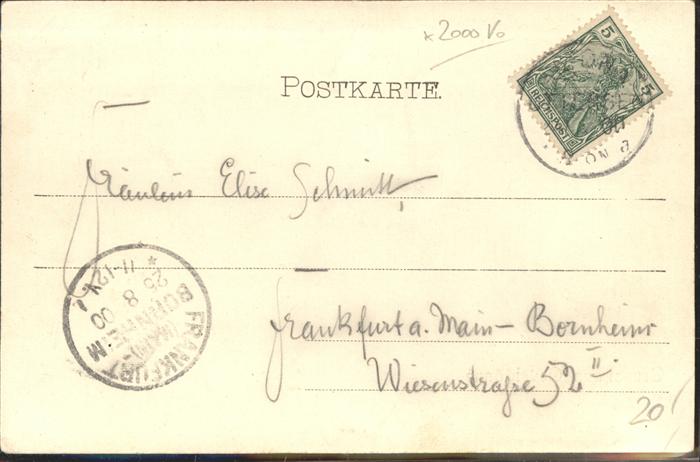 x 2000 Vo
5
5
REICHSPOST
POSTKARTE.
Fräulein Elise Schmitt,
Frankfurt a. Main - Bornheim
Wiesenstraße 52 II
FRANKFURT
(MAIN)-
BORNHEIM
25 8 00
11-12V.
20